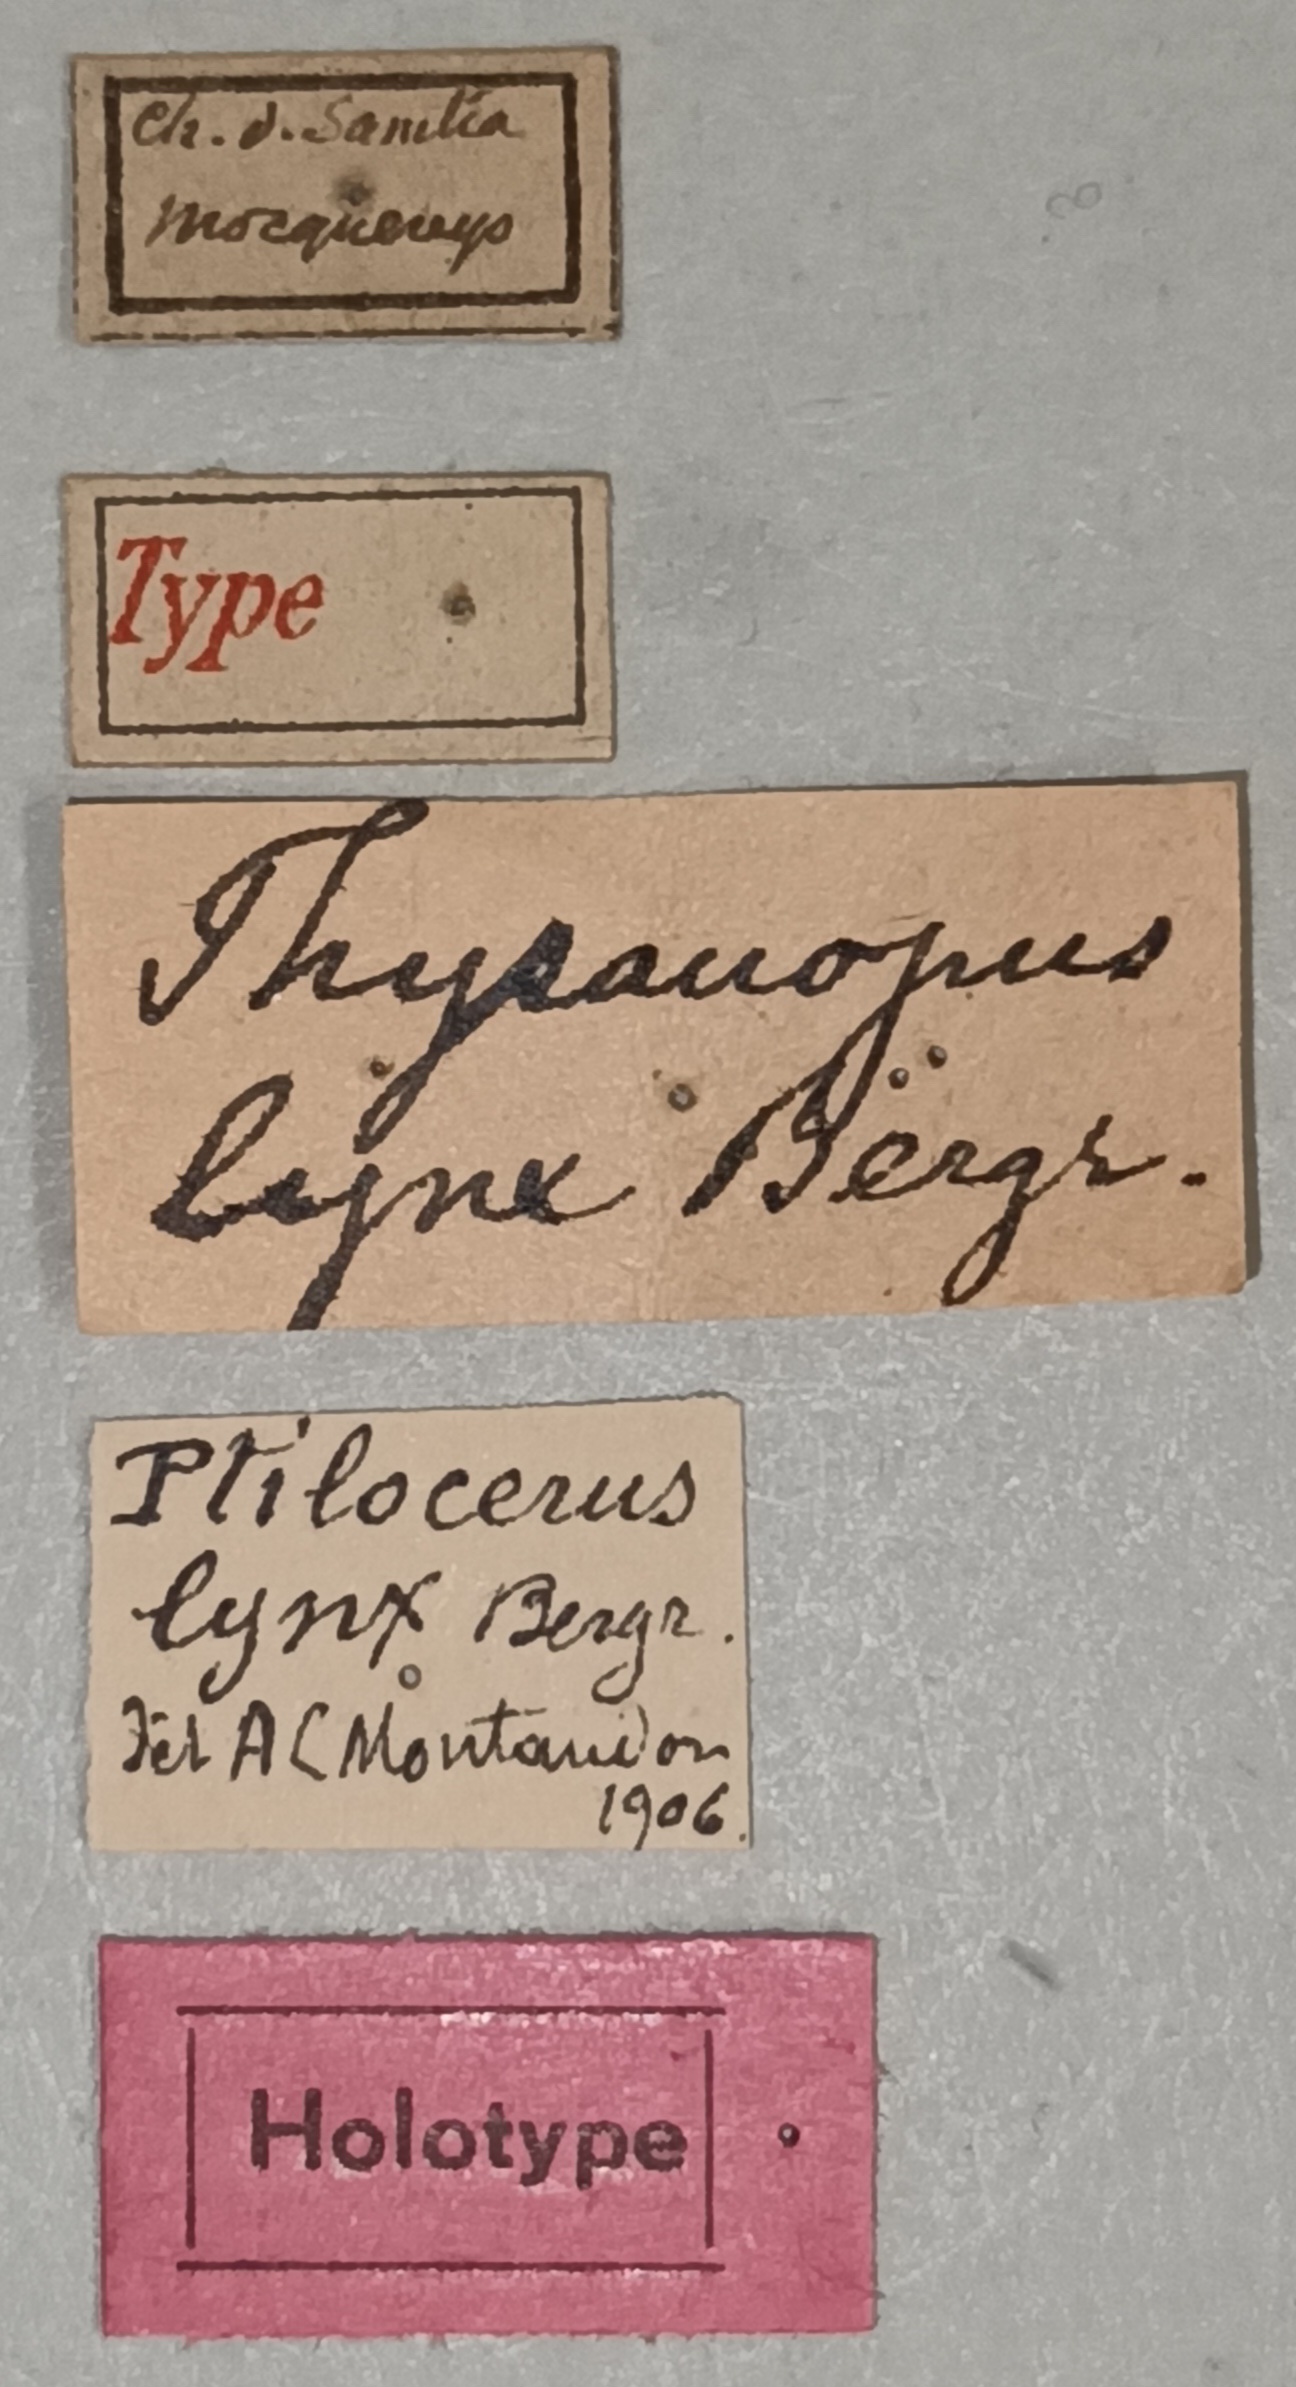 Ch. d. Samlia
Mocquerys
Type
Thysanopus
lynx Bergr.
Ptilocerus
lynx Bergr.
Det A L Montandon
1906.
Holotype